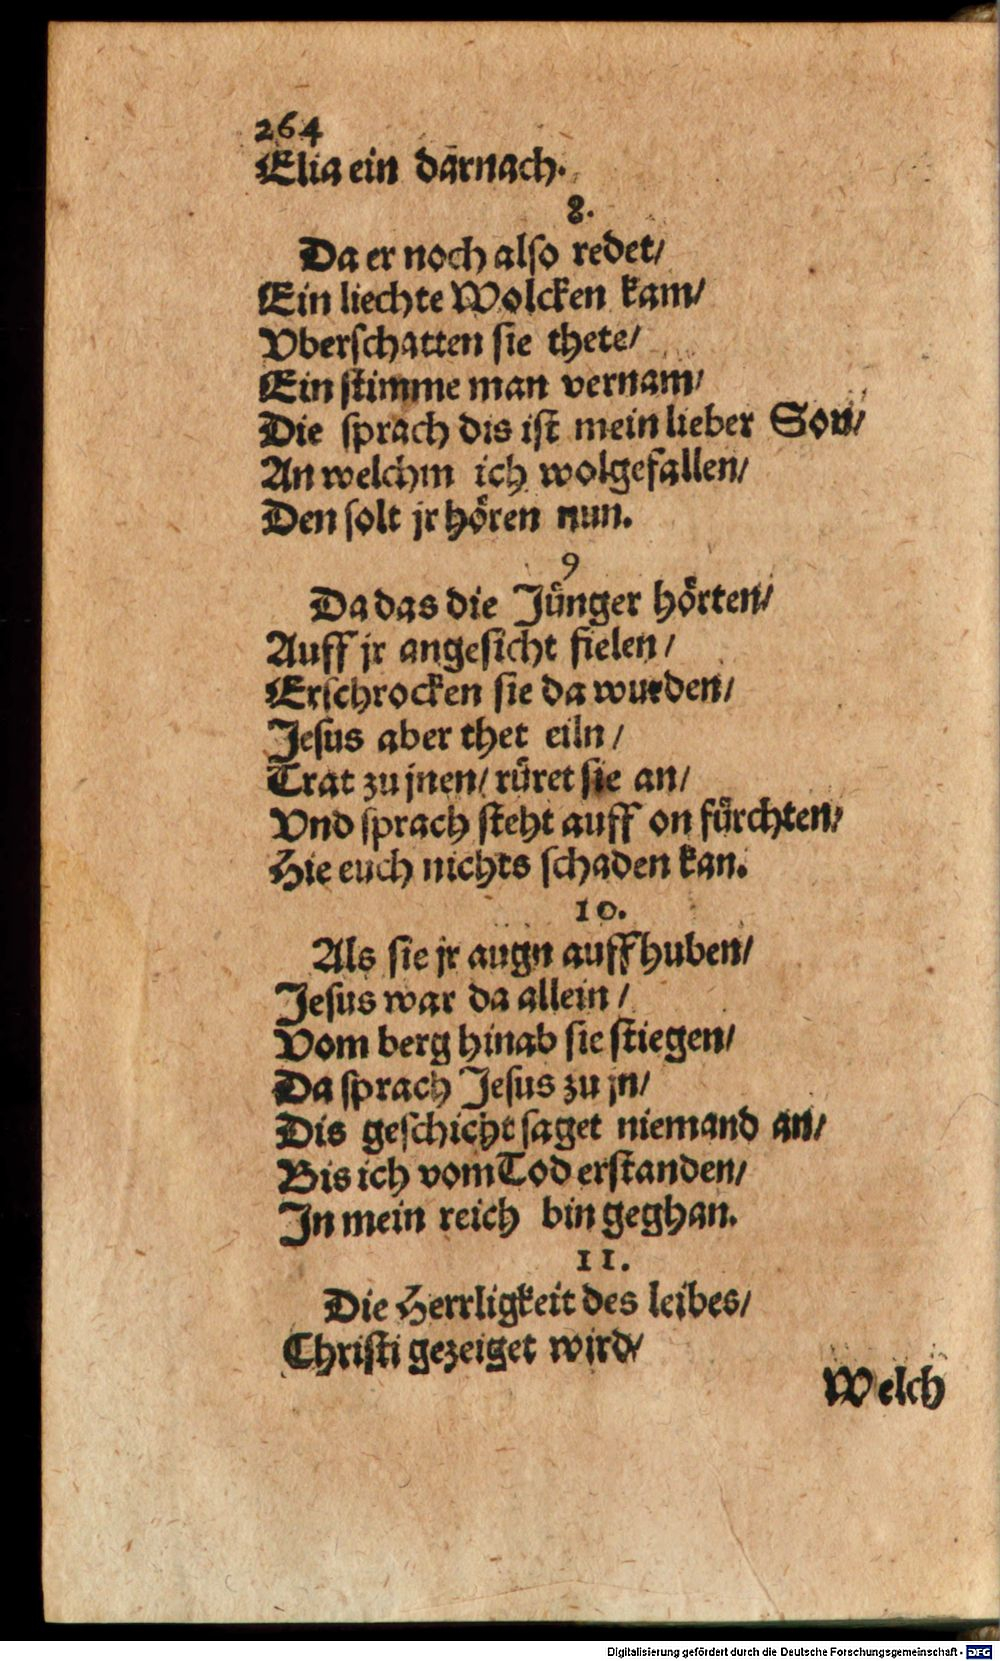 264
Elia ein darnach.
8.
Da er noch also redet/
Ein liechte Wolcken kam/
Vberschatten sie thete/
Ein stimme man vernam/
Die sprach dis ist mein lieber Son/
An welchm ich wolgefallen/
Den solt jr hören nun.
9
Da das die Jünger hörten/
Auff jr angesicht fielen/
Erschrocken sie da wurden/
Jesus aber thet eiln/
Trat zu jnen/ rüret sie an/
Vnd sprach steht auff on fürchten/
Hie euch nichts schaden kan.
10.
Als sie jr augn auffhuben/
Jesus war da allein/
Vom berg hinab sie stiegen/
Da sprach Jesus zu jn/
Dis geschicht saget niemand an/
Bis ich vom Tod erstanden/
In mein reich bin geghan.
11.
Die Herrligkeit des leibes/
Christi gezeiget wird/
Welch
Digitalisierung gefördert durch die Deutsche Forschungsgemeinschaft - DFG